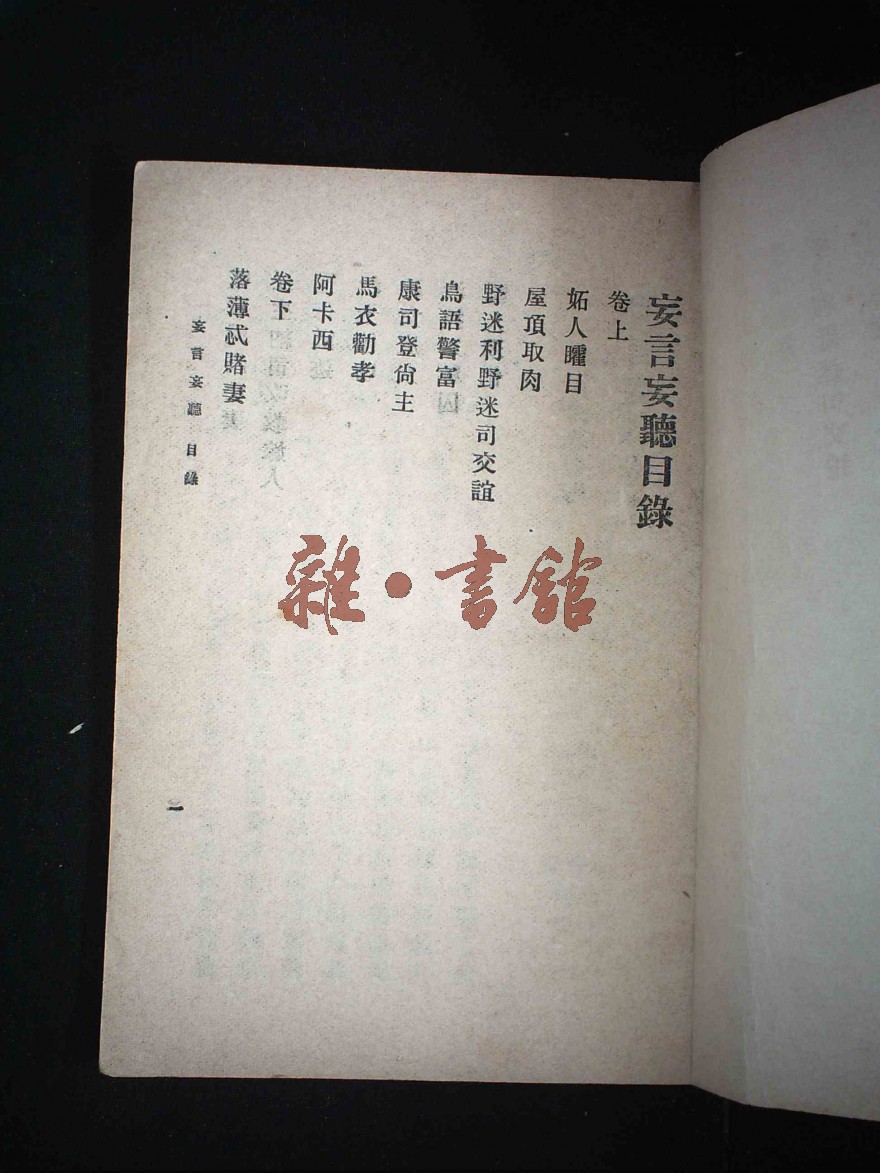 妄言妄聽目錄
卷上
妬人矐目
屋頂取肉
野迷利野迷司交誼
鳥語警富
康司登尙主
馬衣勸孝
阿卡西
卷下
落薄忒賭妻
妄言妄聽 目錄
一
雜·書館